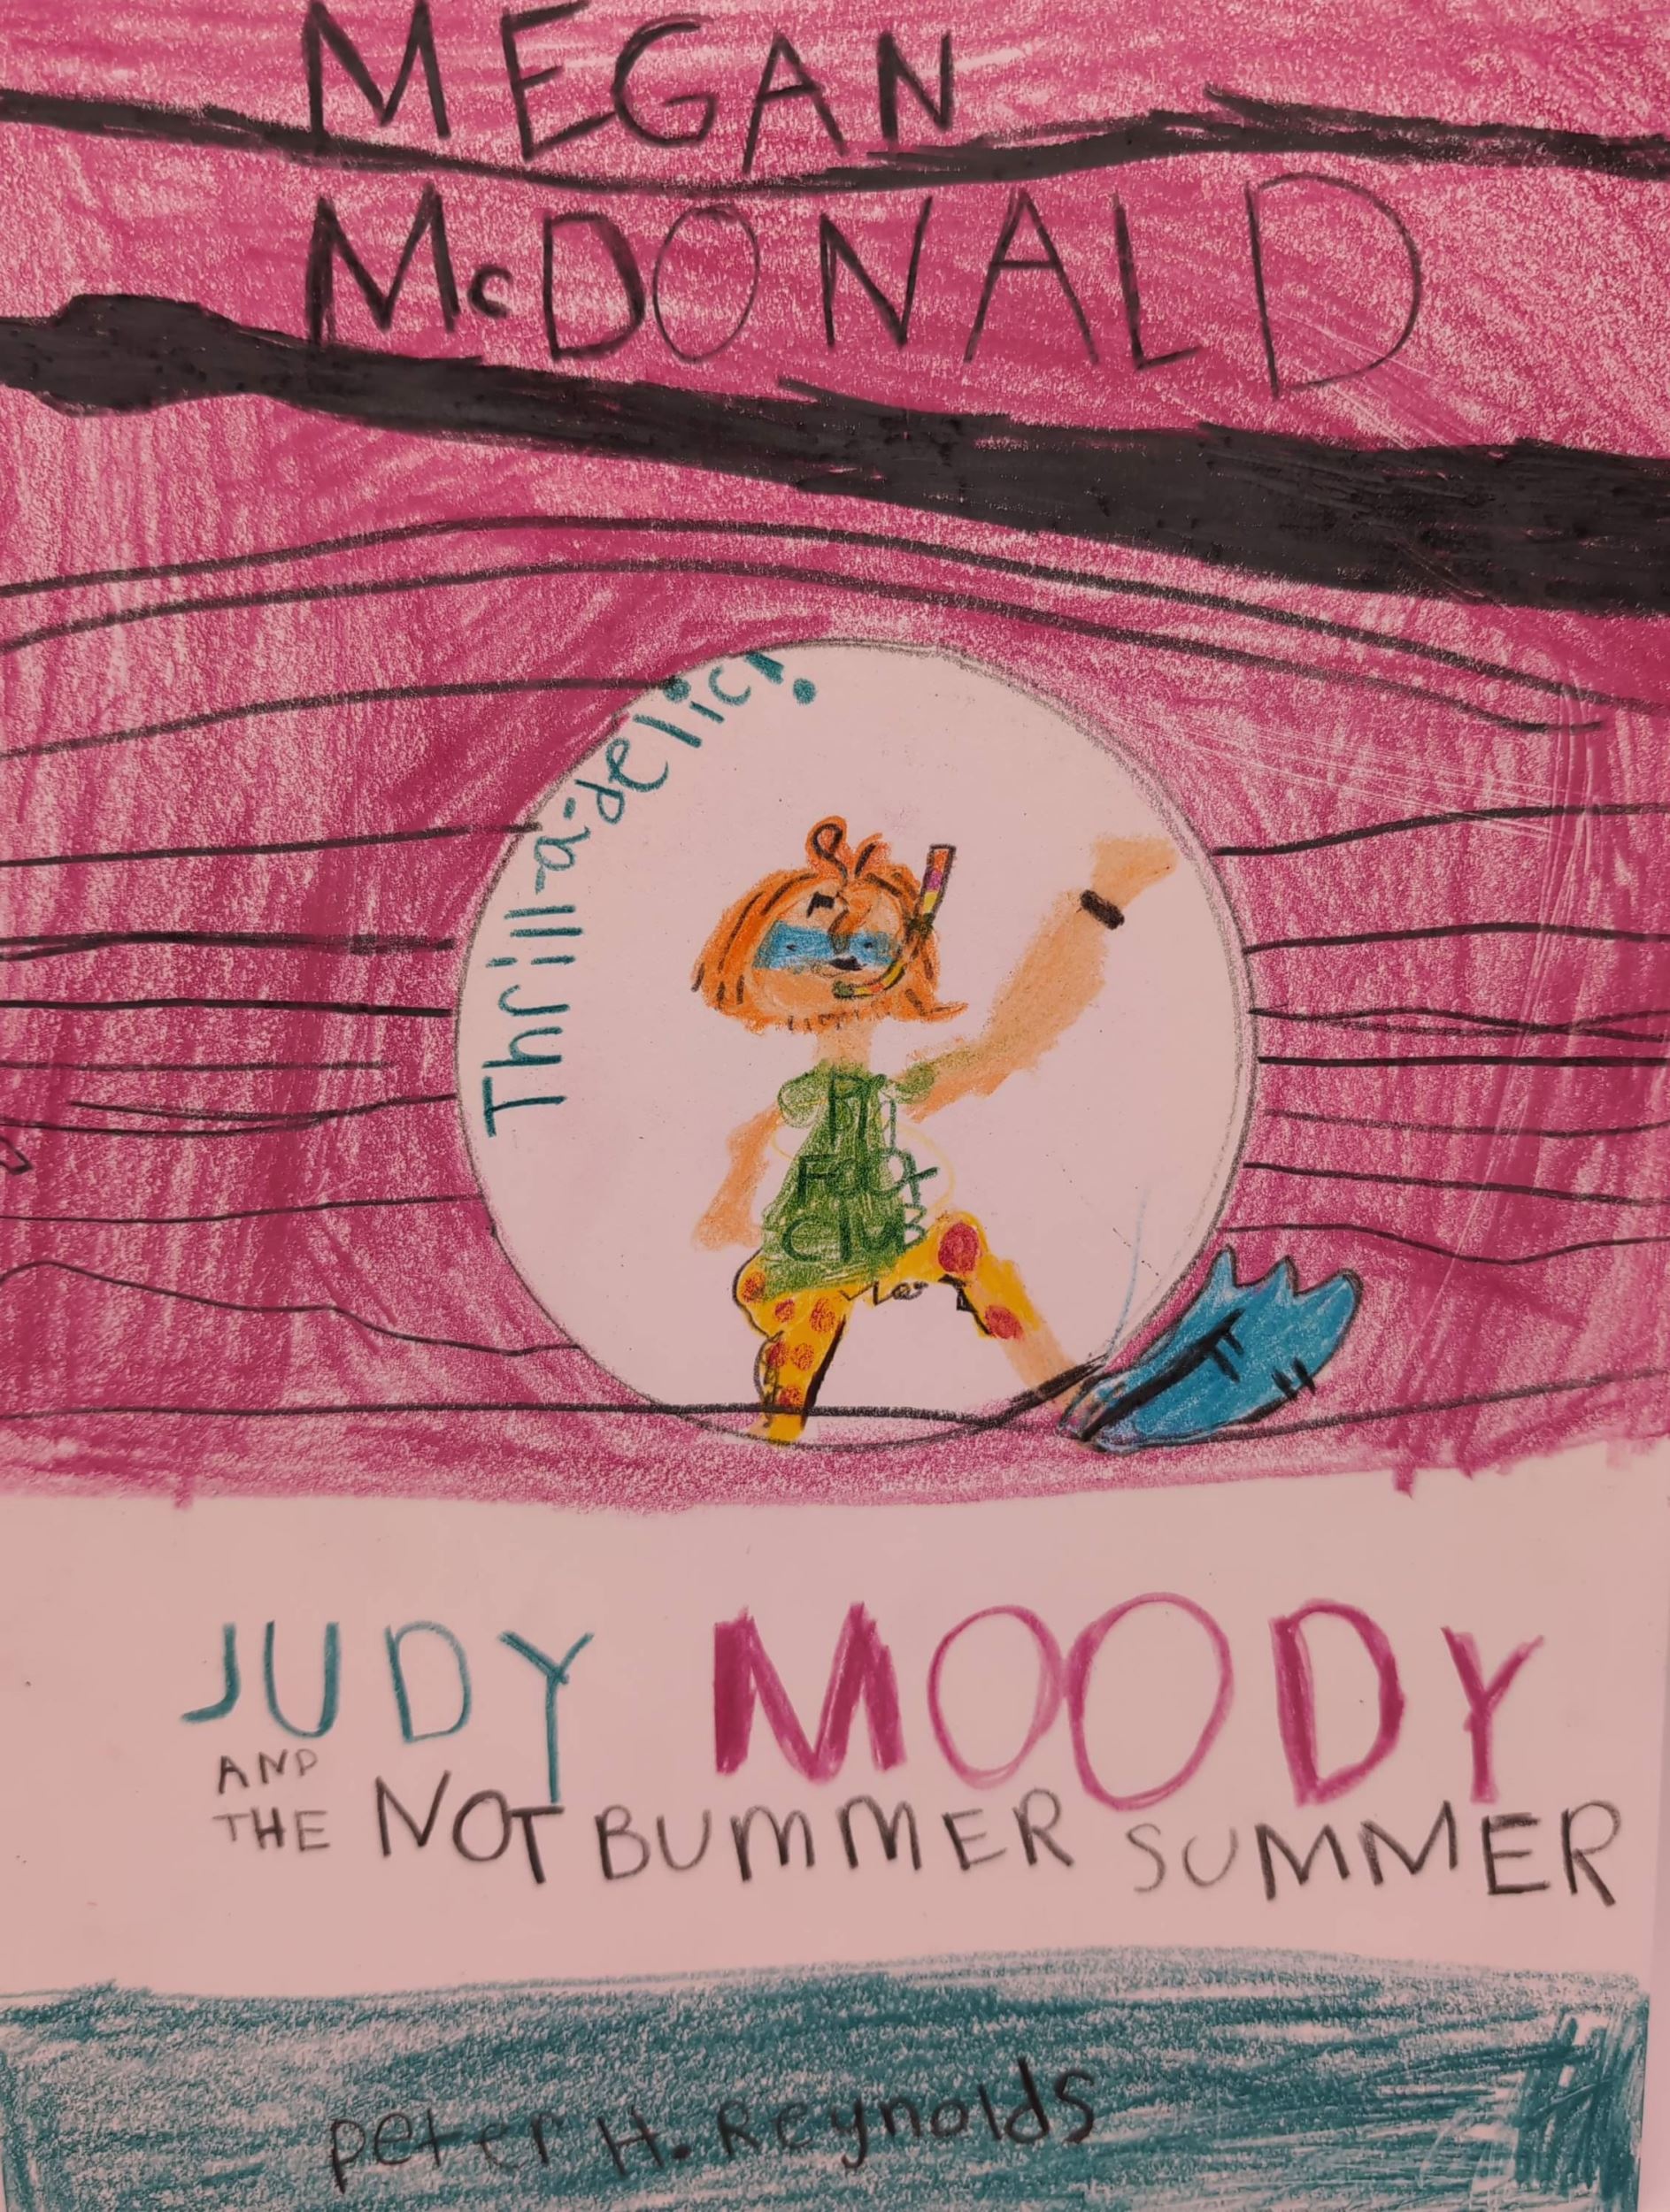 MEGAN
McDONALD
Thrill-a-delic!
CLUB
JUDY MOODY
AND
THE NOT BUMMER SUMMER
Peter H. Reynolds